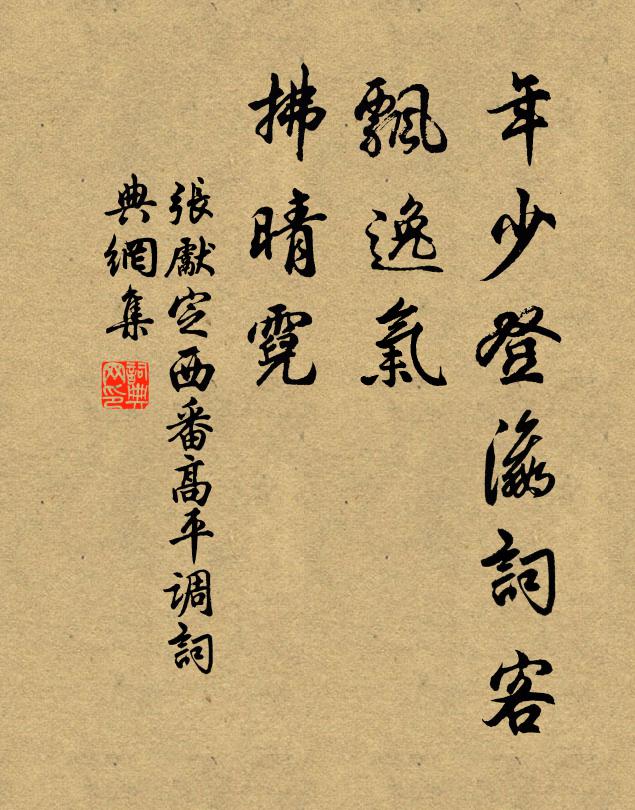 年少登瀛詞客
飄逸氣
拂晴霓
張獻定西番高平调詞
典網集
詞典網印